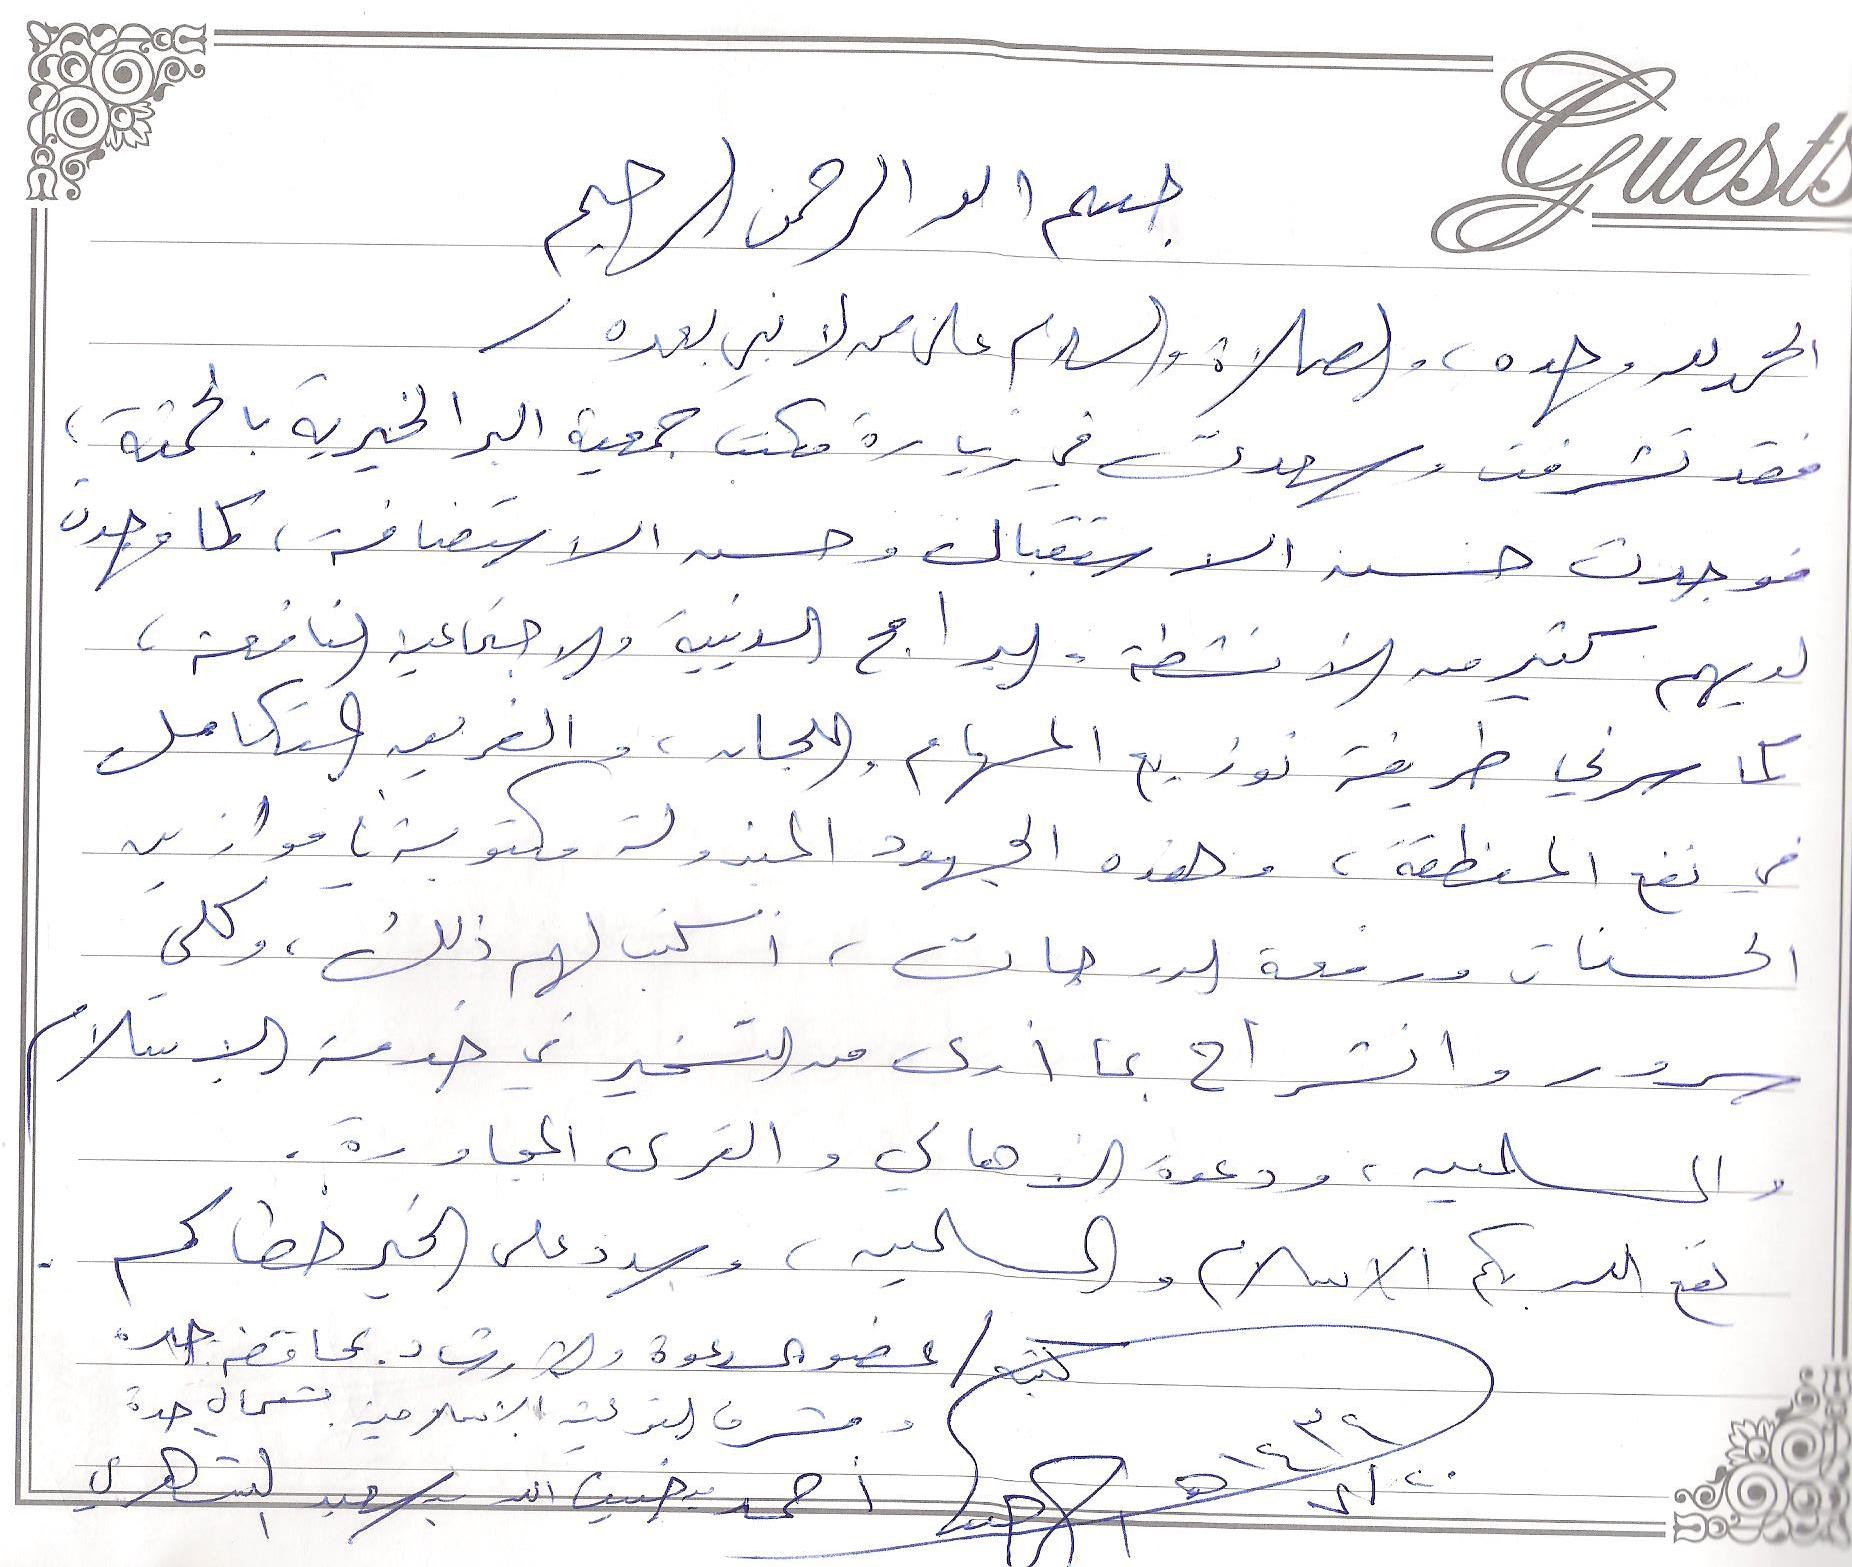 Guests
بسم الله الرحمن الرحيم
الحمد لله وحده، والصلاة والسلام على من لا نبي بعده /
فقد تشرفت وسعدت في زيارة مكتب جمعية البر الخيرية بالحمنة،
فوجدت حسن الاستقبال وحسن الاستضافة، كما وجدت
لديهم كثير من الأنشطة والبرامج الدينية والاجتماعية النافعة،
كما سرني طريقة توزيع المهام واللجان، والفريق المتكامل
في نفع المنطقة، وهذه الجهود المبذولة مكتوبة في موازين
الحسنات ورفعة الدرجات، أكتب لهم ذلك، وكلي
سرور وانشراح بما أرى من التسخير في خدمة الإسلام
والمسلمين، ودعوة الأهالي والقرى المجاورة.
نفع الله بكم الاسلام والمسلمين، وسدد على الخير خطاكم.
كتبه / عضو الدعوة والإرشاد بمحافظة جدة
ومشرف التوعية الإسلامية بشمال جدة
أحمد بن ضيف الله بن سعيد الشهري
١٤٣٢ هـ